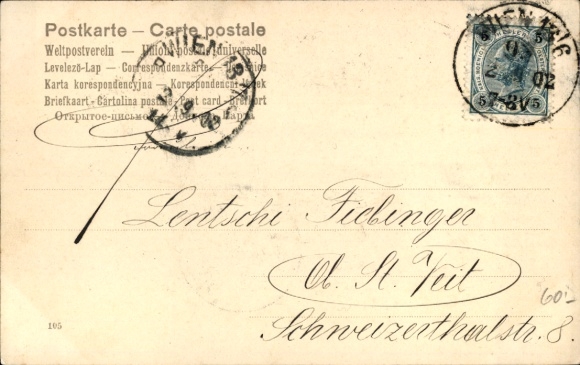 Postkarte – Carte postale
Weltpostverein – Union postale universelle
Levelező-Lap – Correspondenzkarte –
Karta korespondencyjna – Korespondenční lístek
Briefkaart - Cartolina postale - Post card - Brefkort
Открытое письмо
WIEN
WIEN
02
5 5
Lentschi Fieblinger
Ob. St. Veit
Schweizerthalstr. 8.
60.-
105